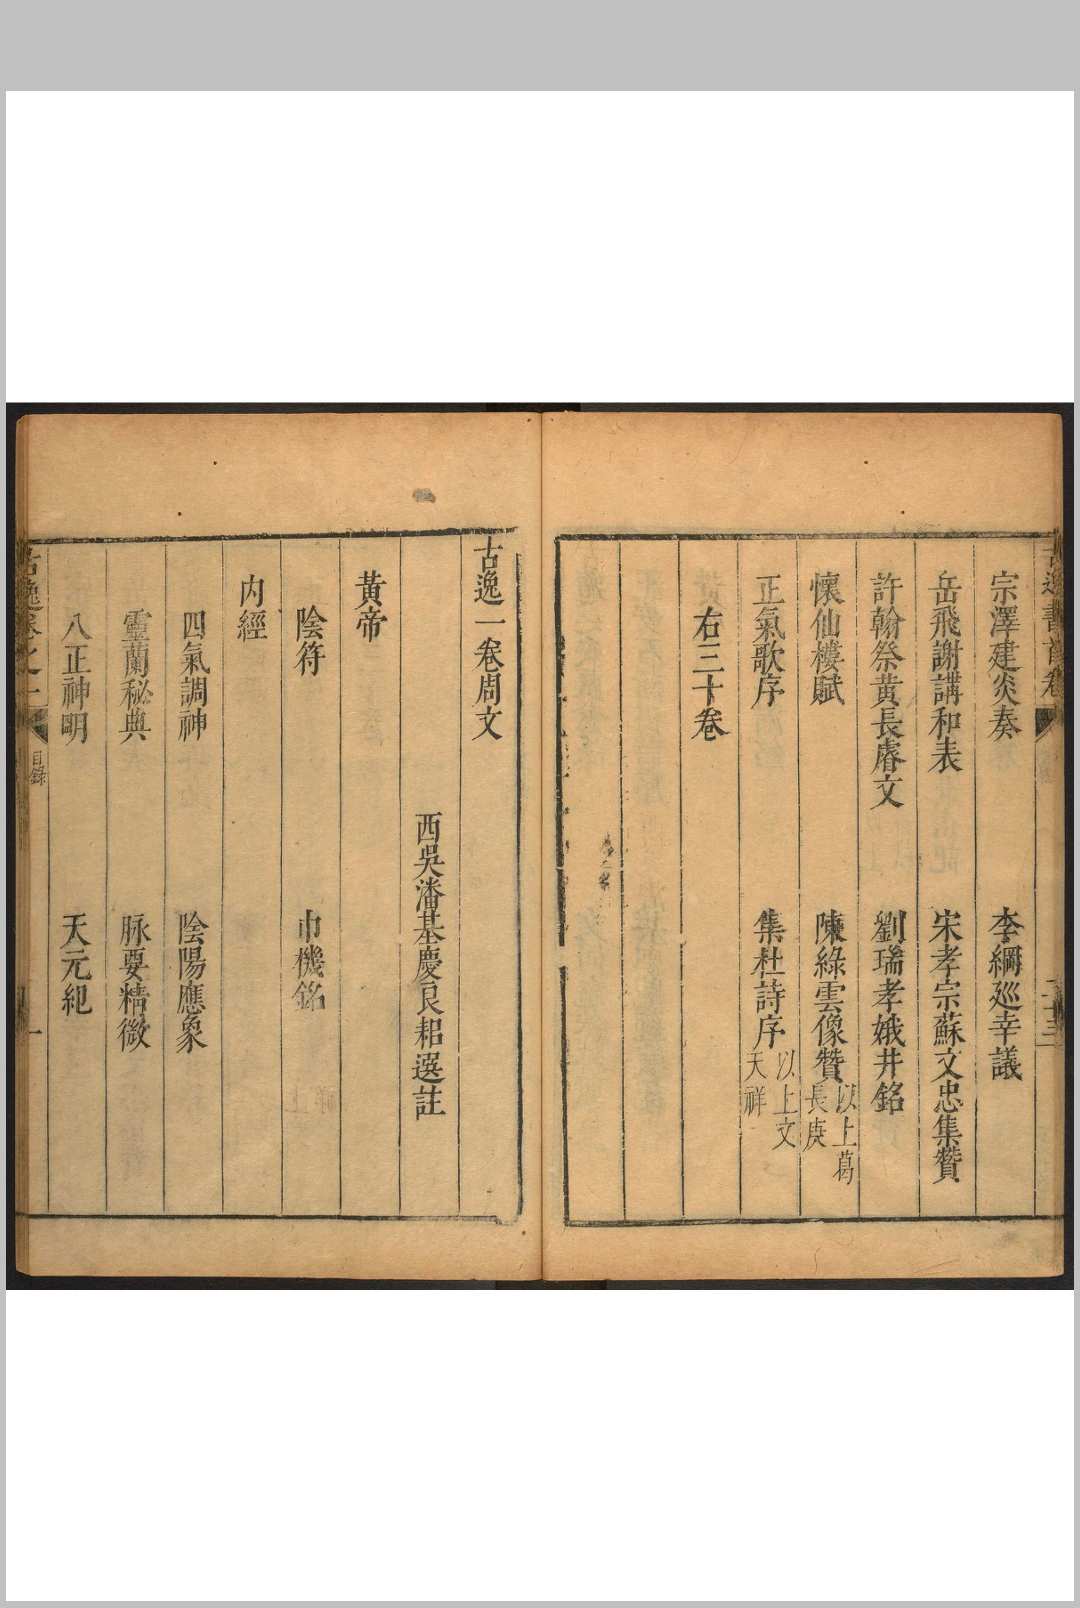 古逸書首卷
二十三
宗澤建炎奏 李綱廵幸議
岳飛謝講和表 宋孝宗蘇文忠集贊
許翰祭黃長睿文 劉瑞孝娥井銘
懷仙樓賦 陳綠雲像贊 以上葛長庚
正氣歌序 集杜詩序 以上文天祥
右三十卷
古逸一卷周文
西吳潘基慶良耜選註
黃帝
陰符 巾機銘
內經
四氣調神 陰陽應象
靈蘭秘典 脉要精微
八正神明 天元紀
古逸卷之一
目錄
一